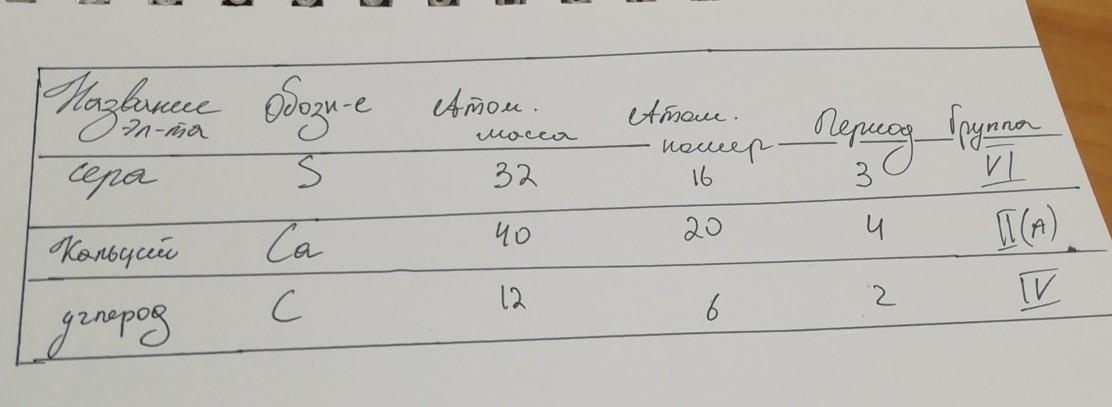 Название Обозн-е Атом. Атом. Период Группа
Эл-та масса номер
сера S 32 16 3 VI
Кальций Ca 40 20 4 II(A)
углерод C 12 6 2 IV